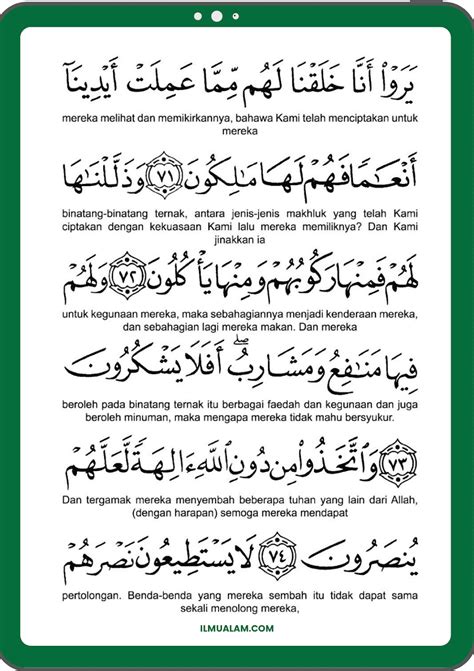 يَرَوْا۟ أَنَّا خَلَقْنَا لَهُم مِّمَّا عَمِلَتْ أَيْدِينَآ
mereka melihat dan memikirkannya, bahawa Kami telah menciptakan untuk
mereka
أَنْعَـٰمًا فَهُمْ لَهَا مَـٰلِكُونَ ﴿٧١﴾ وَذَلَّلْنَـٰهَا
binatang-binatang ternak, antara jenis-jenis makhluk yang telah Kami
ciptakan dengan kekuasaan Kami lalu mereka memiliknya? Dan Kami
jinakkan ia
لَهُمْ فَمِنْهَا رَكُوبُهُمْ وَمِنْهَا يَأْكُلُونَ ﴿٧٢﴾ وَلَهُمْ
untuk kegunaan mereka, maka sebahagiannya menjadi kenderaan mereka,
dan sebahagian lagi mereka makan. Dan mereka
فِيهَا مَنَـٰفِعُ وَمَشَارِبُ ۖ أَفَلَا يَشْكُرُونَ
beroleh pada binatang ternak itu berbagai faedah dan kegunaan dan juga
beroleh minuman, maka mengapa mereka tidak mahu bersyukur.
﴿٧٣﴾ وَٱتَّخَذُوا۟ مِن دُونِ ٱللَّهِ ءَالِهَةً لَّعَلَّهُمْ
Dan tergamak mereka menyembah beberapa tuhan yang lain dari Allah,
(dengan harapan) semoga mereka mendapat
يُنصَرُونَ ﴿٧٤﴾ لَا يَسْتَطِيعُونَ نَصْرَهُمْ
pertolongan. Benda-benda yang mereka sembah itu tidak dapat sama
sekali menolong mereka,
ILMUALAM.COM